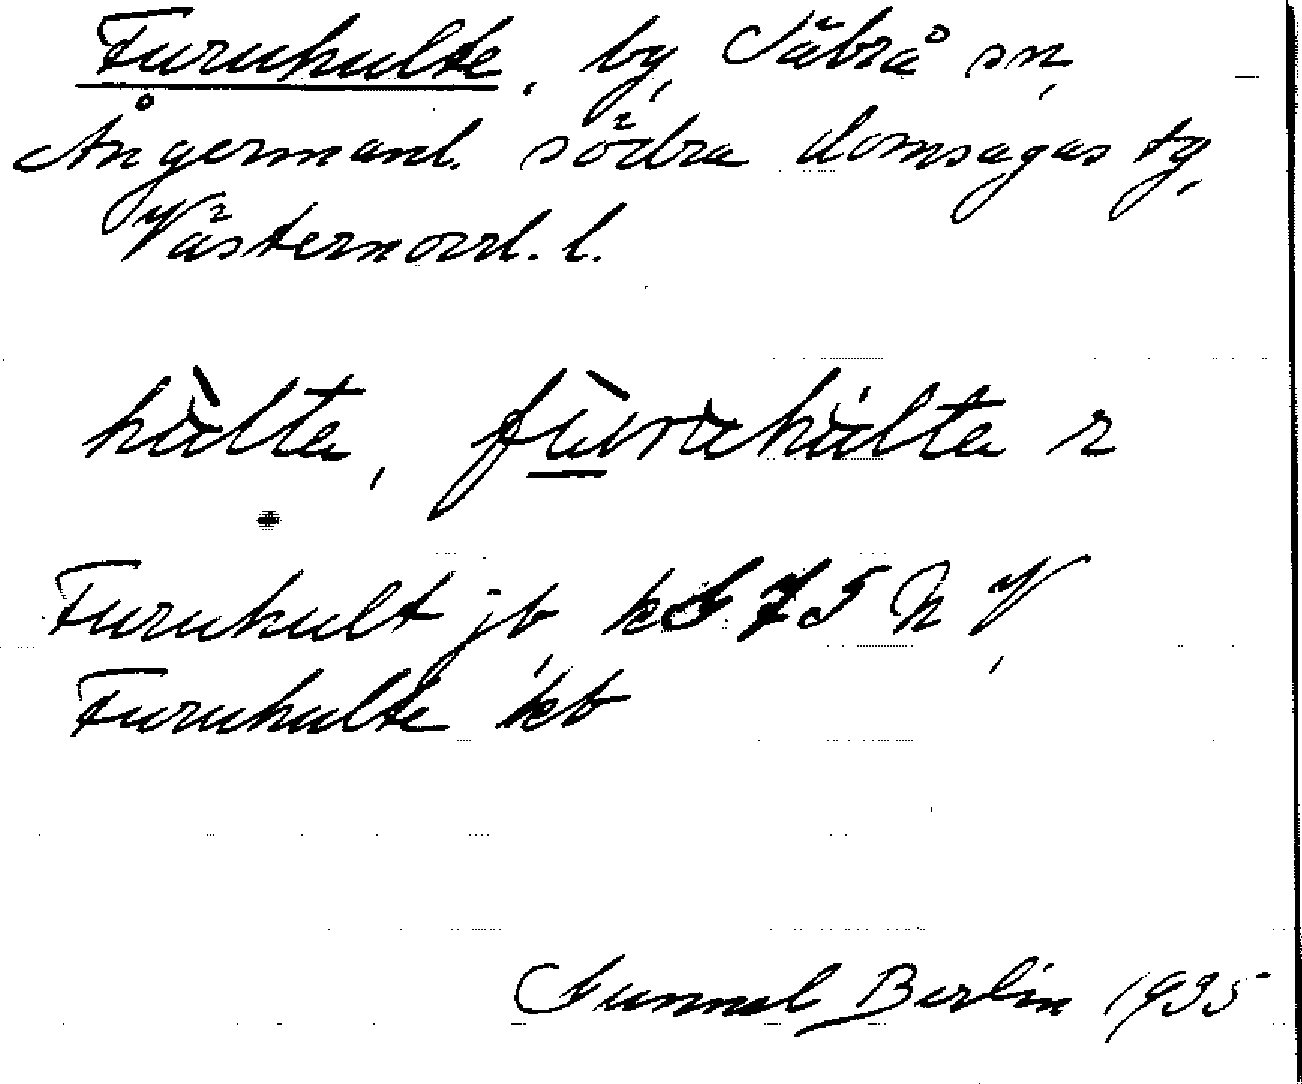 Furuhulte, by, Säbrå sn,
Ångermanl. södra domsagas tg,
Västernorrl. l.
hùlta, fùruhùlta r
Furuhult jb, k 5 75 N V,
Furuhulte kb
Gunnel Berlin 1935